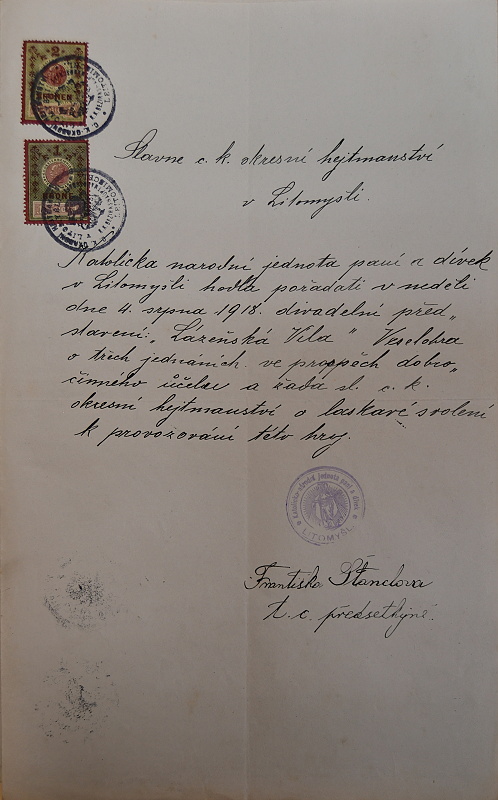 2
KRONEN
LEITOMISCHL
1
KRONEN
Slavné c. k. okresní hejtmanství
v Litomyšli.
Katolicka narodní jednota paní a dívek
v Litomyšli hodlá pořadati v neděli
dne 4. srpna 1918. divadelní před„
stavení: „Lázeňská Vila" Veselohra
o třech jednáních. ve prospěch dobro„
činného účelu a žádá sl. c. k.
okresní hejtmanství o laskavé svolení
k provozování této hry.
Katolicko-národní jednota paní a dívek
LITOMYŠL
Františka Štanclova
t. c. předsetkyně.